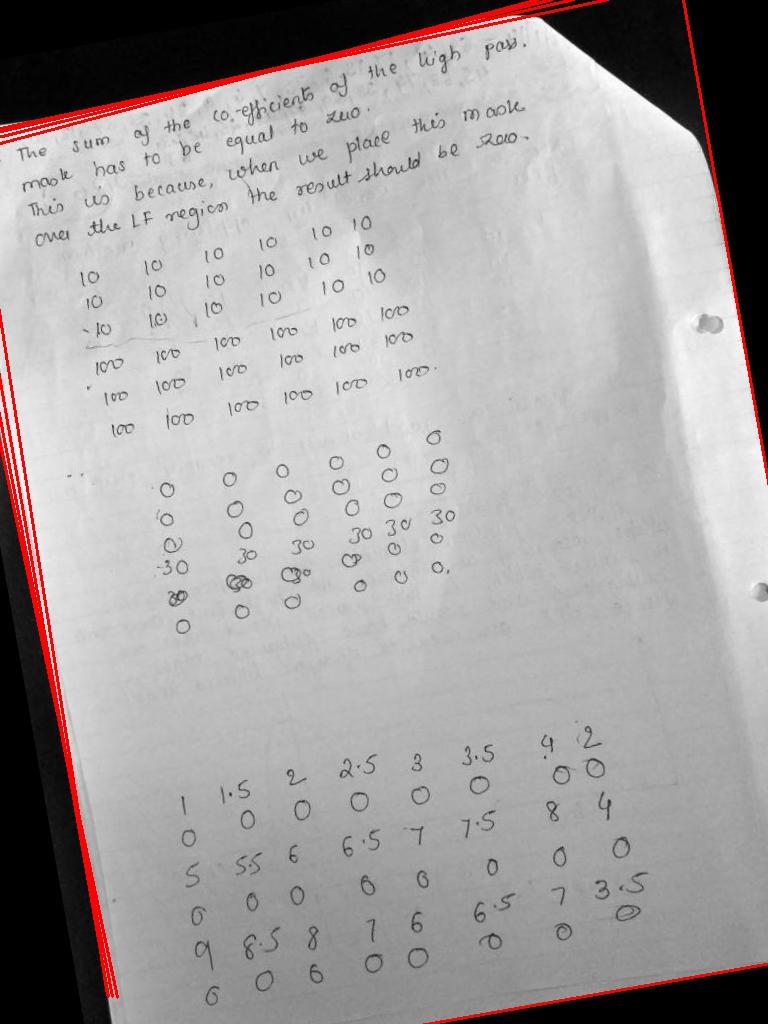 The sum of the co-efficients of the high pass.
mask has to be equal to zero.
This is because, when we place this mask
over the LF region the result should be zero.
10 10 10 10 10 10
10 10 10 10 10 10
10 10 10 10 10 10
100 100 100 100 100 100
100 100 100 100 100 100
100 100 100 100 100 100.
0 0 0 0 0 0
0 0 0 0 0 0
0 0 0 0 0 0
30 30 30 30 30 30
0 0
0 0 0 0 0 0.
1 1.5 2 2.5 3 3.5 4 2
0 0 0 0 0 0 0 0
5 5.5 6 6.5 7 7.5 8 4
0 0 0 0 0 0 0 0
9 8.5 8 7 6 6.5 7 3.5
0 0 0 0 0 0 0 0